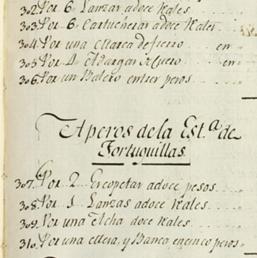 302. Por 6. Lanzas adoce Rales
303. Por 6. Cartucheras adoce Rales.
304. Por una Marca defierro en
305. Por 4. Adargas en
306. Por un Balero entres pesos.
Aperos dela Est.ª de
Fortuquillas
307. Por 2 Escopetas adoce pesos.
308. Por 1 Lanzas adoce Rales
309. Por una Acha doce Rales
310. Por una Mesa, y Banco encinco pesos